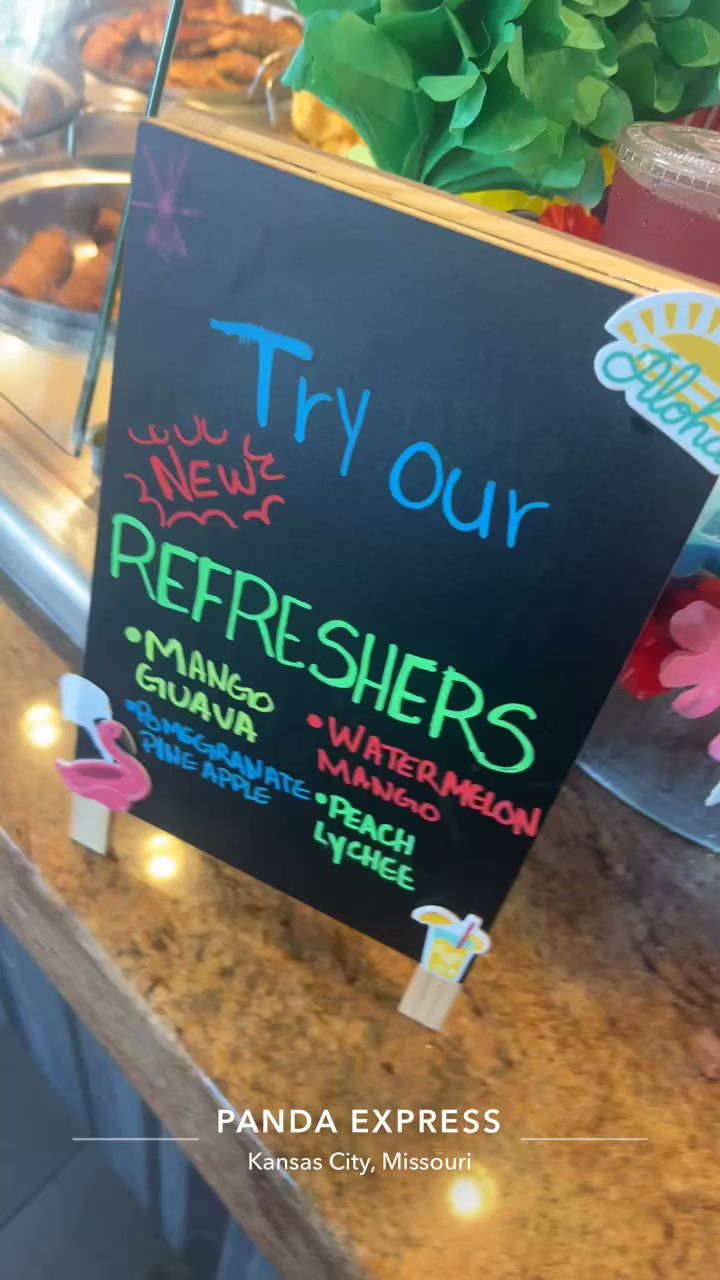 Try our
NEW
REFRESHERS
• MANGO
GUAVA
• POMEGRANATE
PINEAPPLE
• WATERMELON
MANGO
• PEACH
LYCHEE
Aloha
PANDA EXPRESS
Kansas City, Missouri